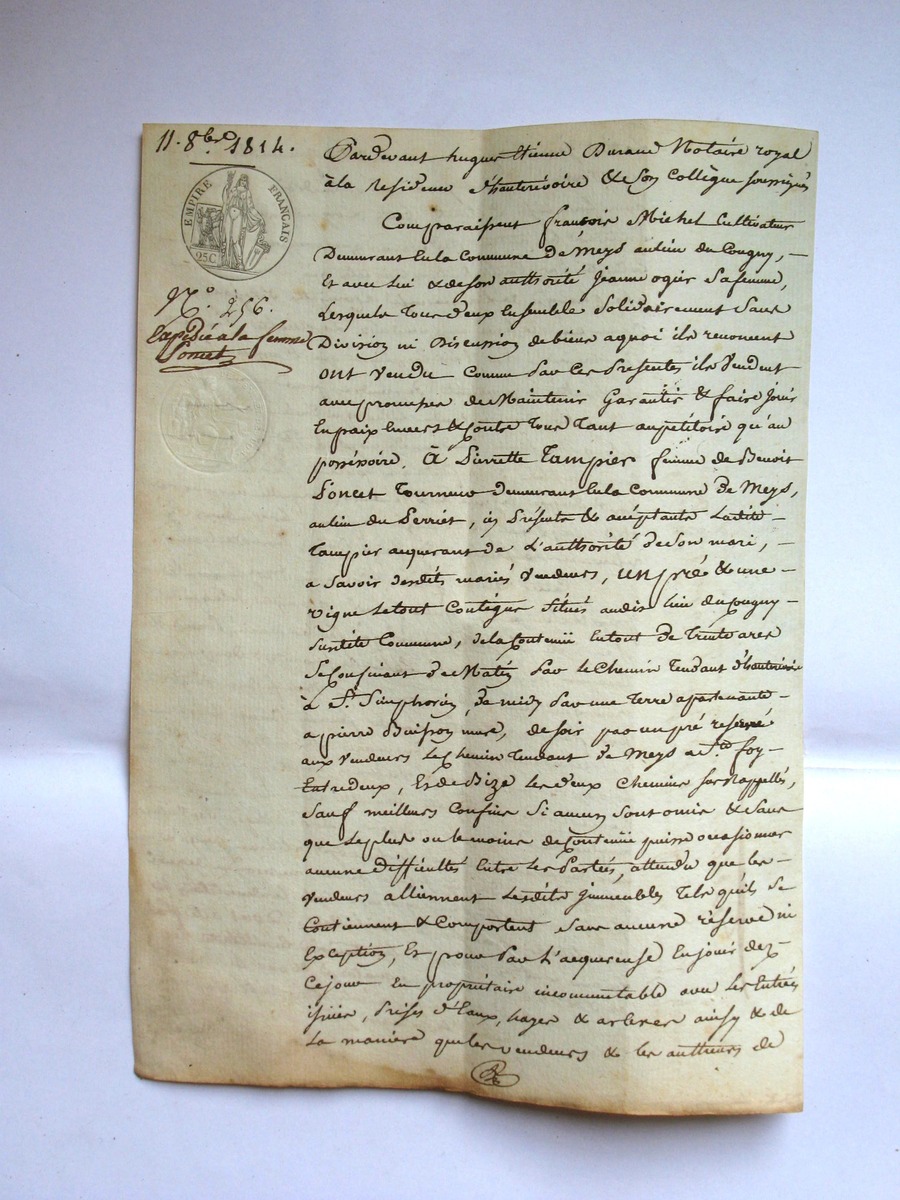 11. 8bre 1814.
EMPIRE FRANÇAIS
25C
N.º 256.
Expédié a la femme
Poncet
Pardevant hugues Etienne Durand Notaire royal
à la residence d'hauterivoire & de son Collègue soussignés
Comparaissent françois Michel Cultivateur
Demeurant en la Commune de Meys au lieu du Cougny,
Et avec lui & de son authorité jeanne ogier sa femme,
Lesquels tous deux Ensemble Solidairement Sans
Division ni Discussion de biens a quoi ils renoncent
ont vendu comme par ces Presentes ils vendent
avec promesse de Maintenir Garantir & faire jouir
En paix Envers & Contre tous tant au pétitoire qu'au
possessoire. À Pierrette Tampier femme de Benoit
Poncet Tourneur demeurant en la Commune de Meys,
au lieu du Perrier, ici Présente & acceptante Ladite
Tampier acquerant de L'authorité de Son mari,
a Savoir desdits mariés vendeurs, un pré & une
vigne Le tout Contigus Situés audit lieu du Cougny
Susdite Commune, de la Contenue en tout de Trente ares
Se Confinant de Matin par le Chemin Tendant d'hauterivoire
à St. Simphorien, de midy par une Terre apartenante
a pierre Buisson, de soir par un pré reservé
aux vendeurs Le Chemin Tendant de Meys a Ste. foy
Entredeux, Et de Bize les deux Chemins sus Rappellés,
Sauf meilleurs Confins Si aucun Sont omis & Sans
que Le plus ou le moins de Contenue puisse occasioner
aucune difficultés Entre Les Parties, attendu que les
vendeurs alliennent Lesdits Immeubles Tels qu'ils Se
Contiennent & Comportent Sans aucune réserve ni
Exception, Et pour par L'acquereuse En jouir dez
Ce jour En propriétaire incommutable avec Les Entrées
issues, Prises d'Eaux, hayes & arbres ainsy & de
La maniere que les vendeurs & les autheurs de